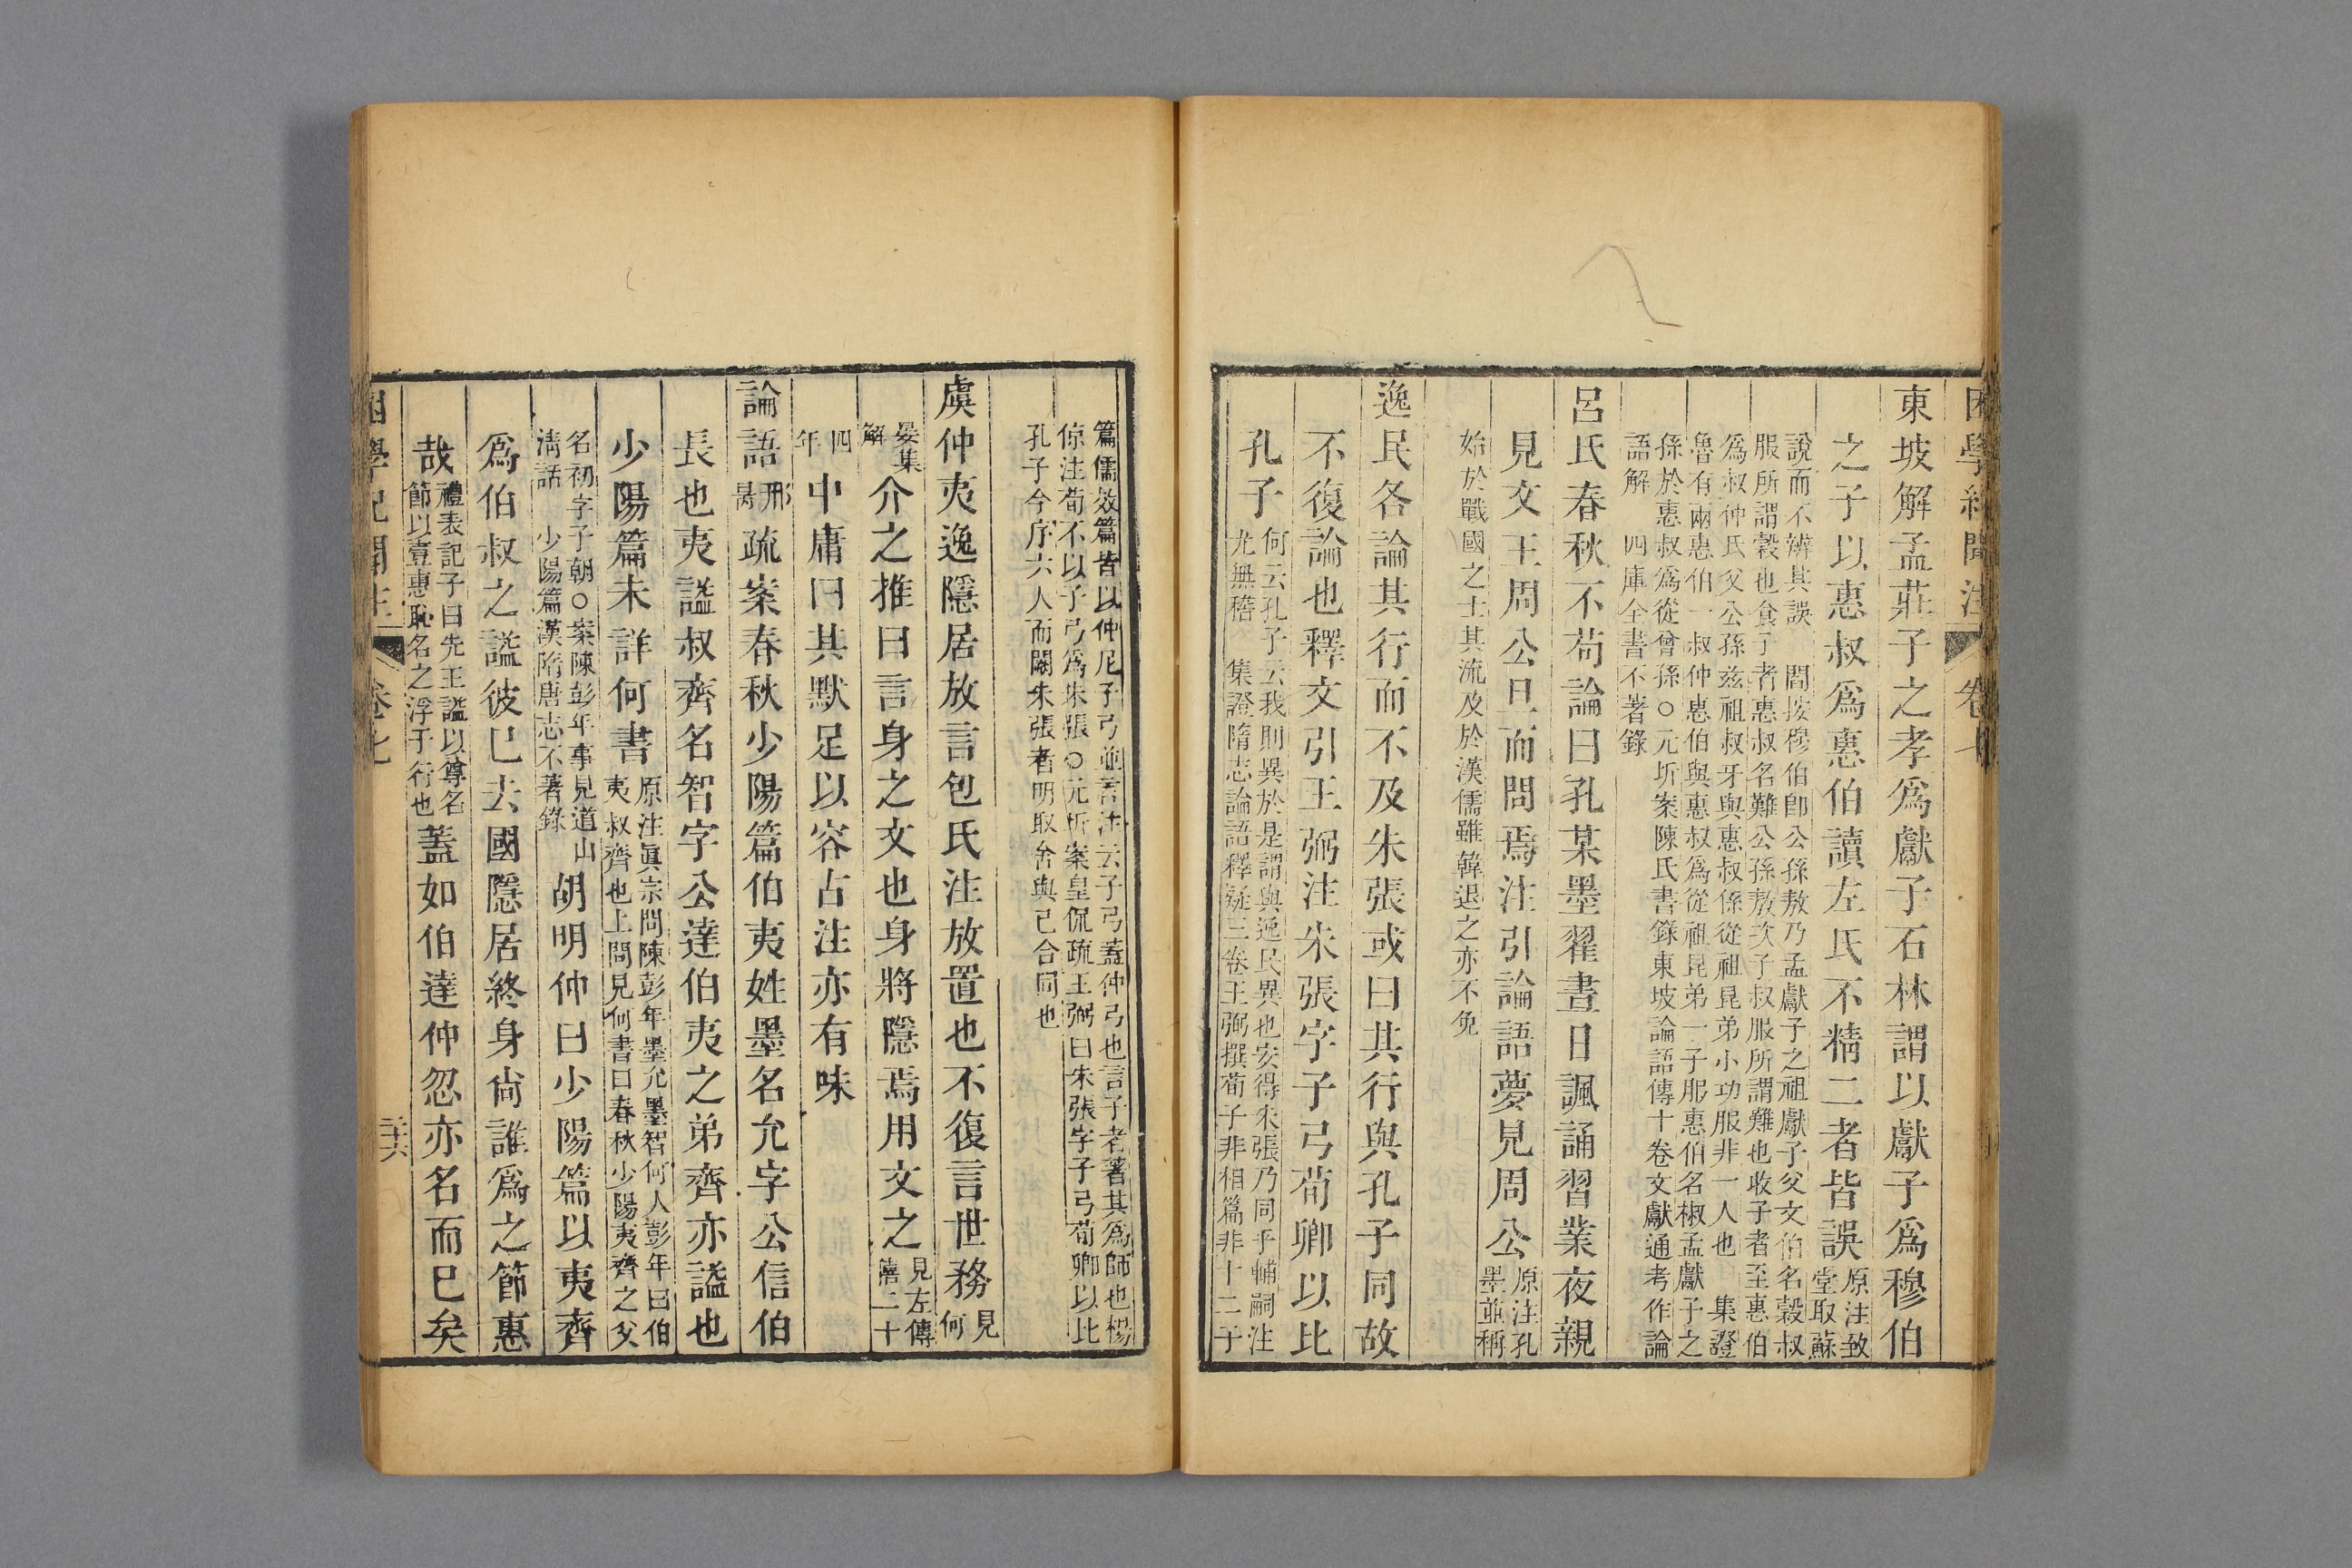 困學紀聞注 卷七
東坡解孟莊子之孝爲獻子石林謂以獻子爲穆伯
之子以惠叔爲惠伯讀左氏不精二者皆誤原注致堂取蘇
說而不辨其誤 閻按穆伯卽公孫敖乃孟獻子之祖獻子父文伯名穀叔
服所謂穀也食子者惠叔名難公孫敖次子叔服所謂難也收子者至惠伯
爲叔仲氏父公孫兹祖叔牙與惠叔係從祖昆弟小功服非一人也 集證
魯有兩惠伯一叔仲惠伯與惠叔爲從祖昆弟一子服惠伯名椒孟獻子之
孫於惠叔爲從曾孫○元圻案陳氏書錄東坡論語傳十卷文獻通考作論
語解 四庫全書不著錄
呂氏春秋不苟論曰孔某墨翟晝日諷誦習業夜親
見文王周公旦而問焉注引論語夢見周公原注孔墨並稱
始於戰國之士其流及於漢儒雖韓退之亦不免
逸民各論其行而不及朱張或曰其行與孔子同故
不復論也釋文引王弼注朱張字子弓荀卿以比
孔子何云孔子云我則異於是謂與逸民異也安得朱張乃同乎輔嗣注
尤無稽 集證隋志論語釋疑三卷王弼撰荀子非相篇非十二子
篇儒效篇皆以仲尼子弓並言注云子弓蓋仲弓也言子者著其爲師也楊
倞注荀不以子弓爲朱張○元圻案皇侃疏王弼曰朱張字子弓荀卿以比
孔子今序六人而闕朱張者明取舍與己合同也
虞仲夷逸隱居放言包氏注放置也不復言世務見何
晏集解介之推曰言身之文也身將隱焉用文之見左傳僖二十
四年中庸曰其默足以容古注亦有味
論語邢昺疏案春秋少陽篇伯夷姓墨名允字公信伯
長也夷謚叔齊名智字公達伯夷之弟齊亦謚也
少陽篇未詳何書原注眞宗問陳彭年墨允墨智何人彭年曰伯
夷叔齊也上問見何書曰春秋少陽夷齊之父
名初字子朝○案陳彭年事見道山
淸話 少陽篇漢隋唐志不著錄胡明仲曰少陽篇以夷齊
爲伯叔之謚彼已去國隱居終身尙誰爲之節惠
哉禮表記子曰先王謚以尊名
節以壹惠恥名之浮于行也蓋如伯達仲忽亦名而已矣
困學紀聞注 卷七 二十六